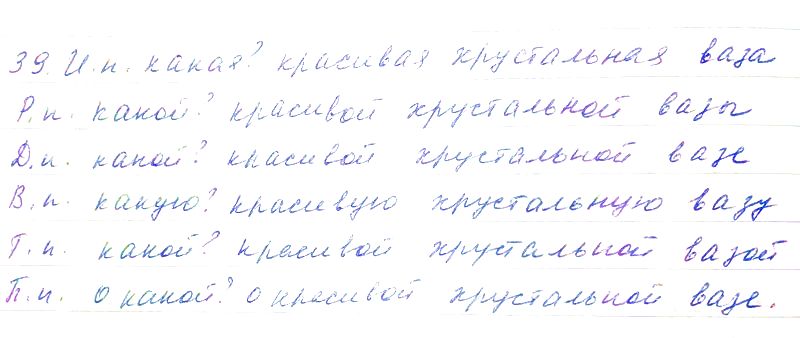 39. И.п. какая? красивая хрустальная ваза
Р.п. какой? красивой хрустальной вазы
Д.п. какой? красивой хрустальной вазе
В.п. какую? красивую хрустальную вазу
Т.п. какой? красивой хрустальной вазой
П.п. о какой? о красивой хрустальной вазе.